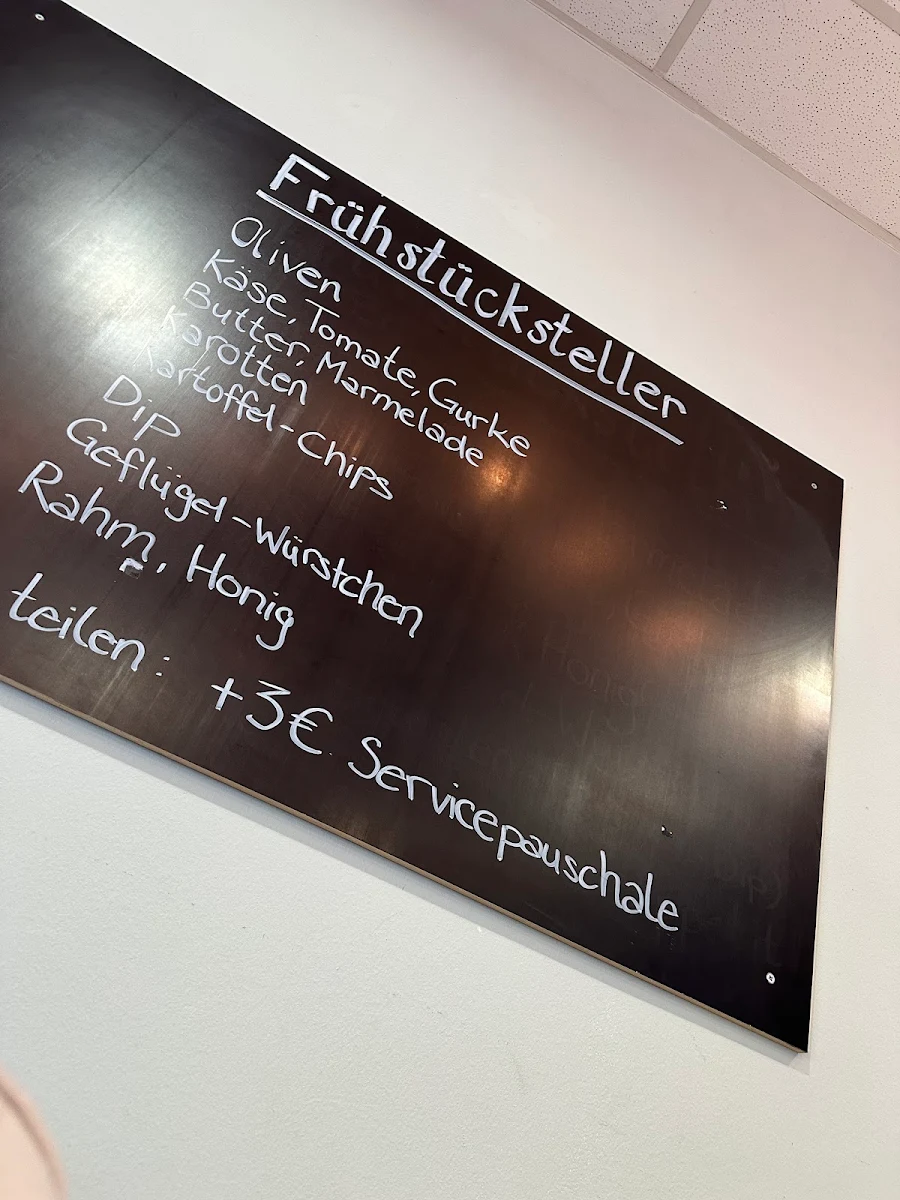 Frühstücksteller
Oliven
Käse, Tomate, Gurke
Butter, Marmelade
Karotten
Kartoffel-Chips
Dip
Geflügel-Würstchen
Rahm, Honig
teilen: +3€ Servicepauschale